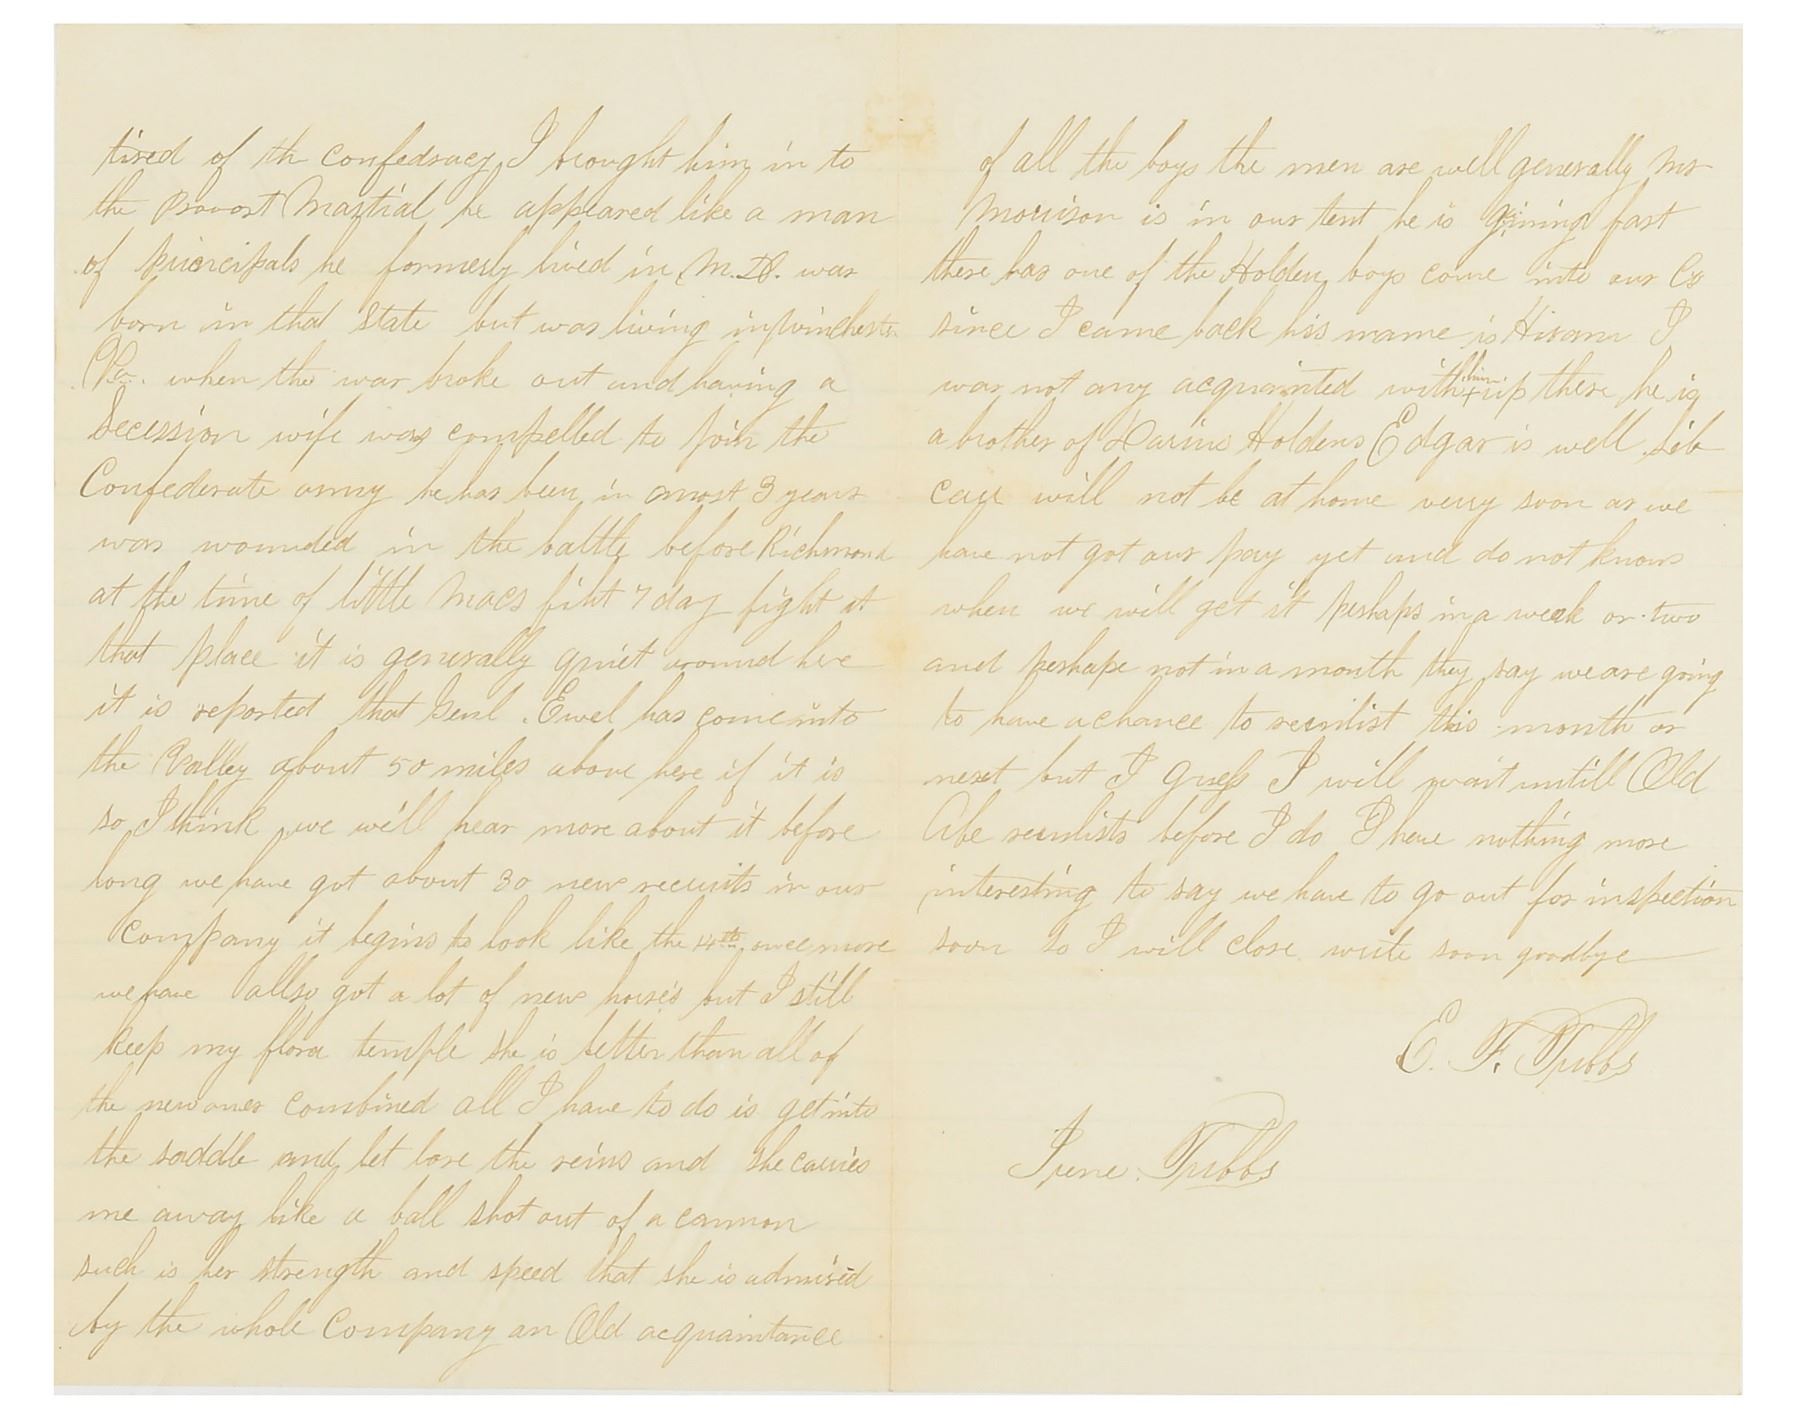 tired of th confedracy I brought him in to
the Provost Martial he appeared like a man
of principals he formerly lived in M.D. was
born in that State but was living in Winchester
Va. when the war broke out and having a
Secession wife was compelled to join the
Confederate army he has been in most 3 years
was wounded in the battle before Richmond
at the time of little Macs fiht 7 day fight at
that place it is generally quiet around here
it is reported that Genl. Ewel has come into
the Valley about 50 miles above here if it is
so I think we will hear more about it before
long we have got about 30 new recruits in our
Company it begins to look like the 4th once more
we have allso got a lot of new horses but I still
keep my flora temple she is better than all of
the new ones combined all I have to do is get into
the saddle and let lose the reins and she carries
me away like a ball shot out of a cannon
such is her strength and speed that she is admired
by the whole Company an Old acquaintance
of all the boys the men are well generally Mr
Morrison is in our tent he is gaining fast
there has one of the Holden boys come into our Co
since I came back his name is Hiram I
was not any acquainted with him up there he is
a brother of Darius Holdens Edgar is well
will not be at home very soon as we
have not got our pay yet and do not know
when we will get it perhaps in a week or two
and perhaps not in a month they say we are going
to have a chance to reenlist this month or
next but I guess I will wait untill Old
Abe reenlists before I do I have nothing more
interesting to say we have to go out for inspection
soon so I will close write soon goodbye
E. F. Tubbs
Irene Tubbs